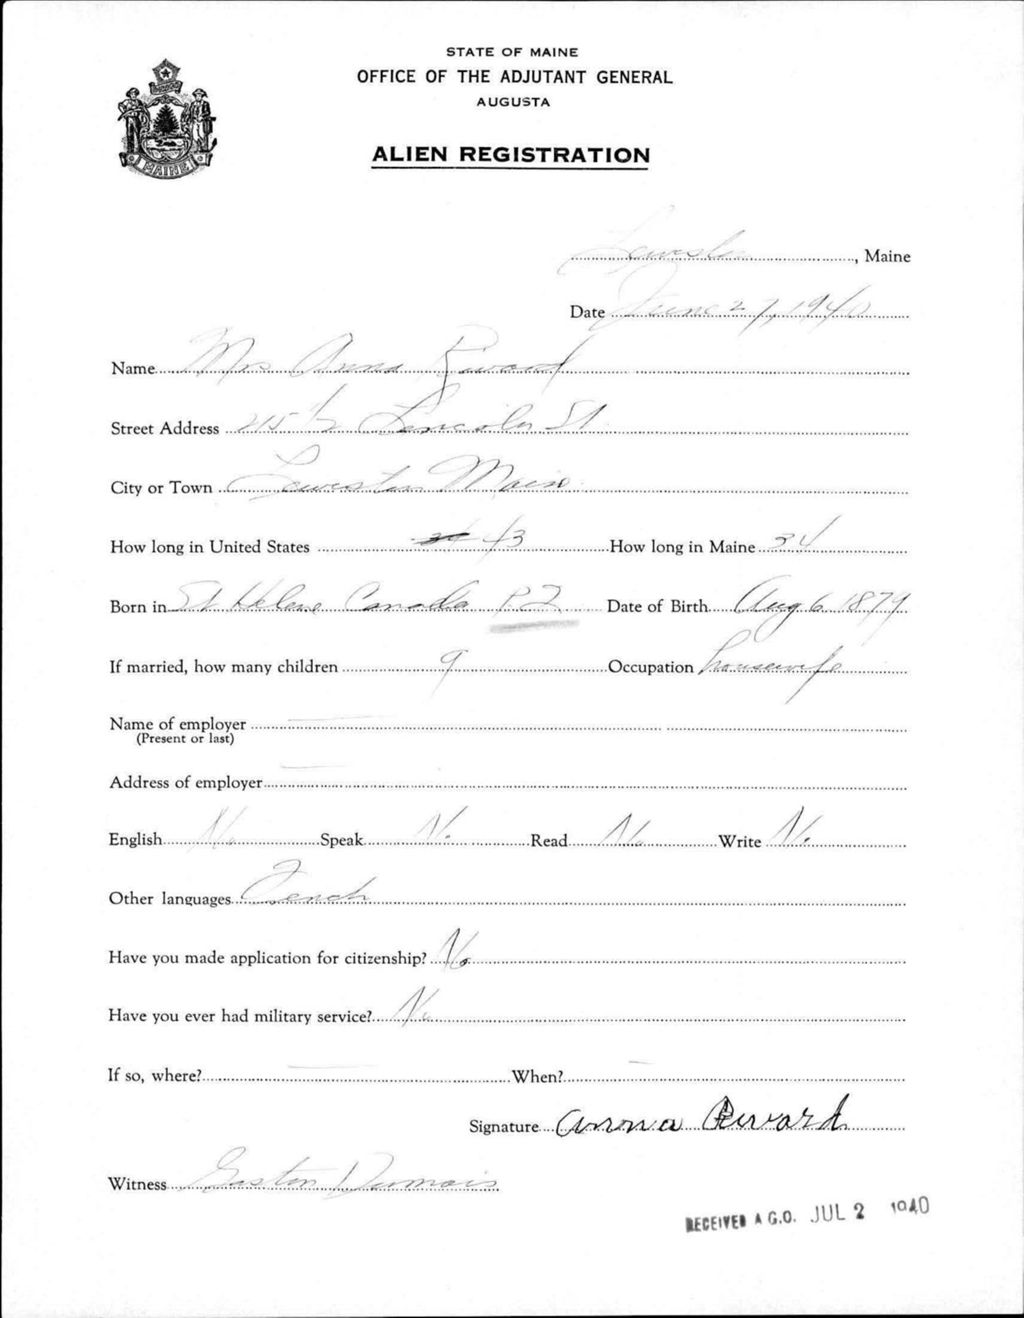 STATE OF MAINE
OFFICE OF THE ADJUTANT GENERAL
AUGUSTA
ALIEN REGISTRATION
MAINE
Lewiston, Maine
Date June 27, 1940
Name Mrs Anna Rivard
Street Address 215 1/2 Lincoln St
City or Town Lewiston Maine
How long in United States 43 How long in Maine 34
Born in St Helene Canada P.Q Date of Birth Aug 6 1879
If married, how many children 9 Occupation housewife
Name of employer
(Present or last)
Address of employer
English No Speak No Read No Write No
Other languages French
Have you made application for citizenship? No
Have you ever had military service? No
If so, where? When?
Signature Anna Rivard
Witness Gaston Dumais
RECEIVED A.G.O. JUL 2 1940